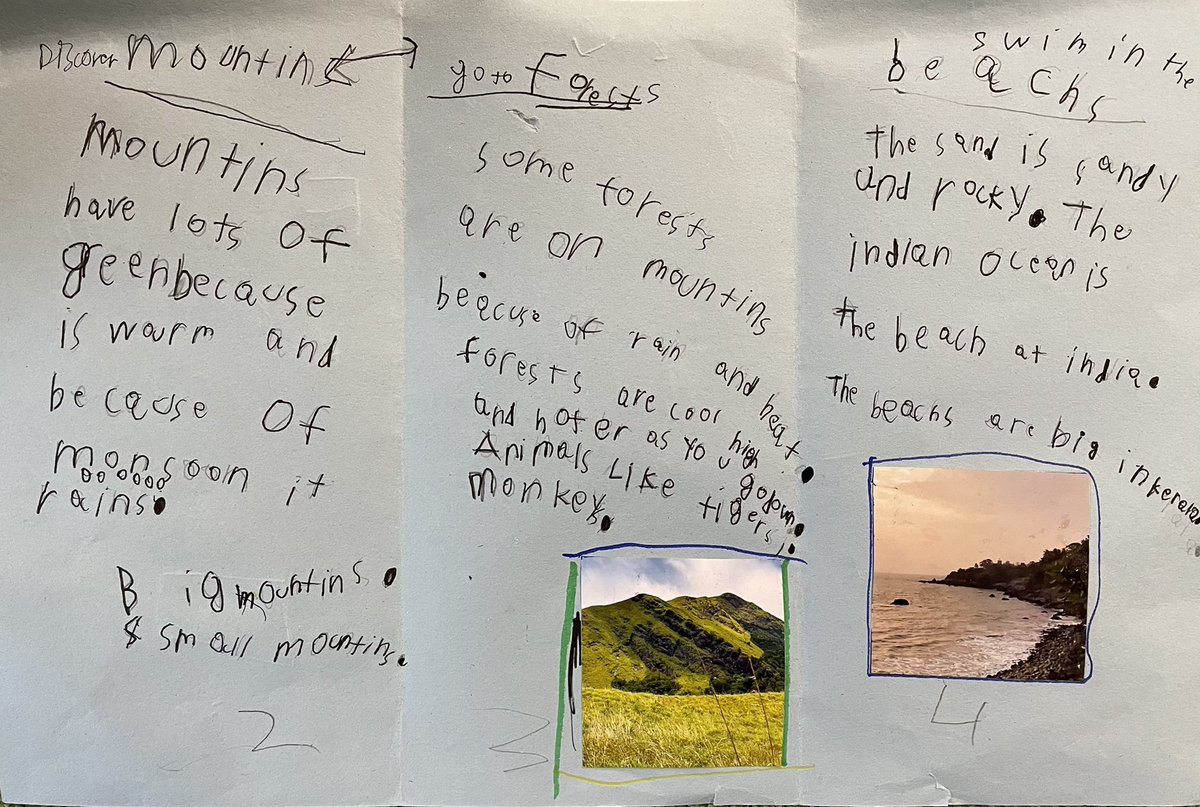 Discover mountins
mountins
have lots of
greenbecause
is warm and
because of
monsoon it
rains.
Big mountins.
small mountins.
2
go to Forests
some forests
are on mountins
beacuse of rain and heat.
forests are cool high
and hoter as you go down.
Animals Like tigers,
monkeys.
3
swim in the
beachs
the sand is sandy
and rocky. The
indian ocean is
the beach at india.
The beachs are big in kerala.
4